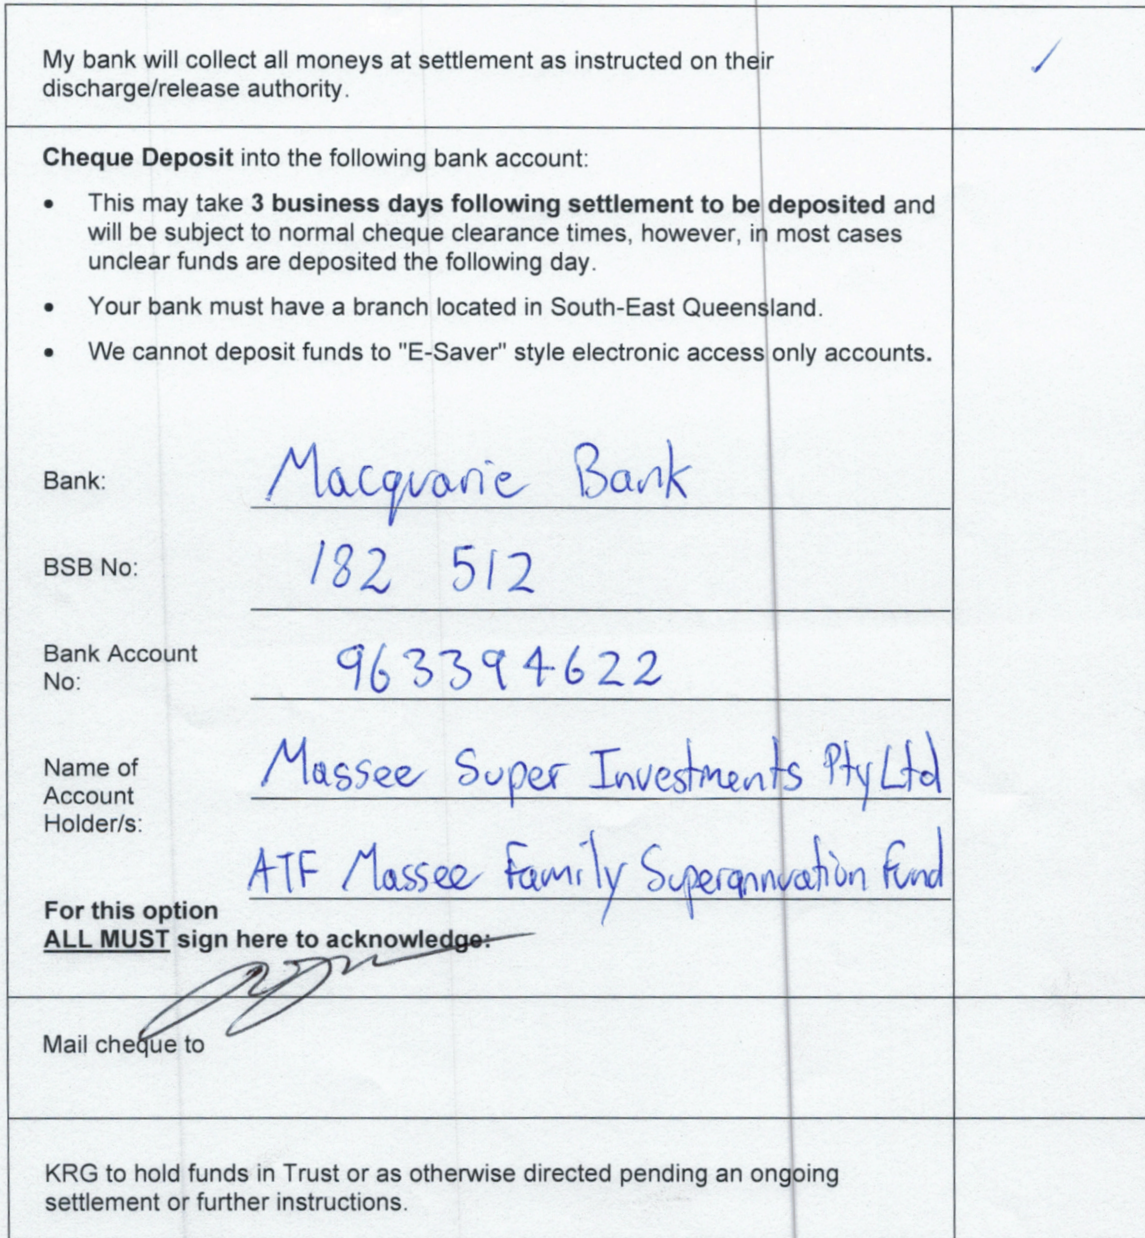 My bank will collect all moneys at settlement as instructed on their
discharge/release authority.
✓
Cheque Deposit into the following bank account:
• This may take 3 business days following settlement to be deposited and
will be subject to normal cheque clearance times, however, in most cases
unclear funds are deposited the following day.
• Your bank must have a branch located in South-East Queensland.
• We cannot deposit funds to "E-Saver" style electronic access only accounts.
Bank: Macquarie Bank
BSB No: 182 512
Bank Account
No: 963394622
Name of
Account
Holder/s:
Massee Super Investments Pty Ltd
ATF Massee Family Superannuation Fund
For this option
ALL MUST sign here to acknowledge:
Mail cheque to
KRG to hold funds in Trust or as otherwise directed pending an ongoing
settlement or further instructions.